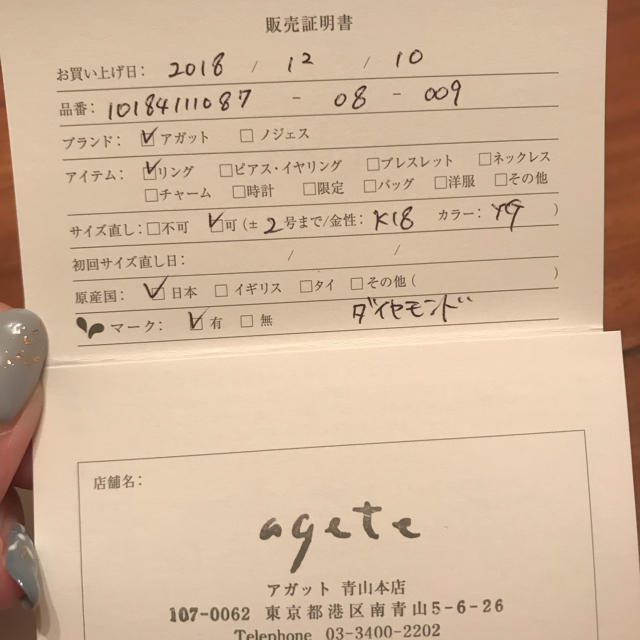 販売証明書
お買い上げ日: 2018 / 12 / 10
品番: 10184111087 - 08 - 009
ブランド: ☑アガット □ノジェス
アイテム: ☑リング □ピアス・イヤリング □ブレスレット □ネックレス
□チャーム □時計 □限定 □バッグ □洋服 □その他
サイズ直し: □不可 ☑可(± 2号まで/金性: K18 カラー: YG )
初回サイズ直し日: / /
原産国: ☑日本 □イギリス □タイ □その他( )
マーク: ☑有 □無 ダイヤモンド
店舗名:
agete
アガット 青山本店
107-0062 東京都港区南青山5-6-26
Telephone 03-3400-2202